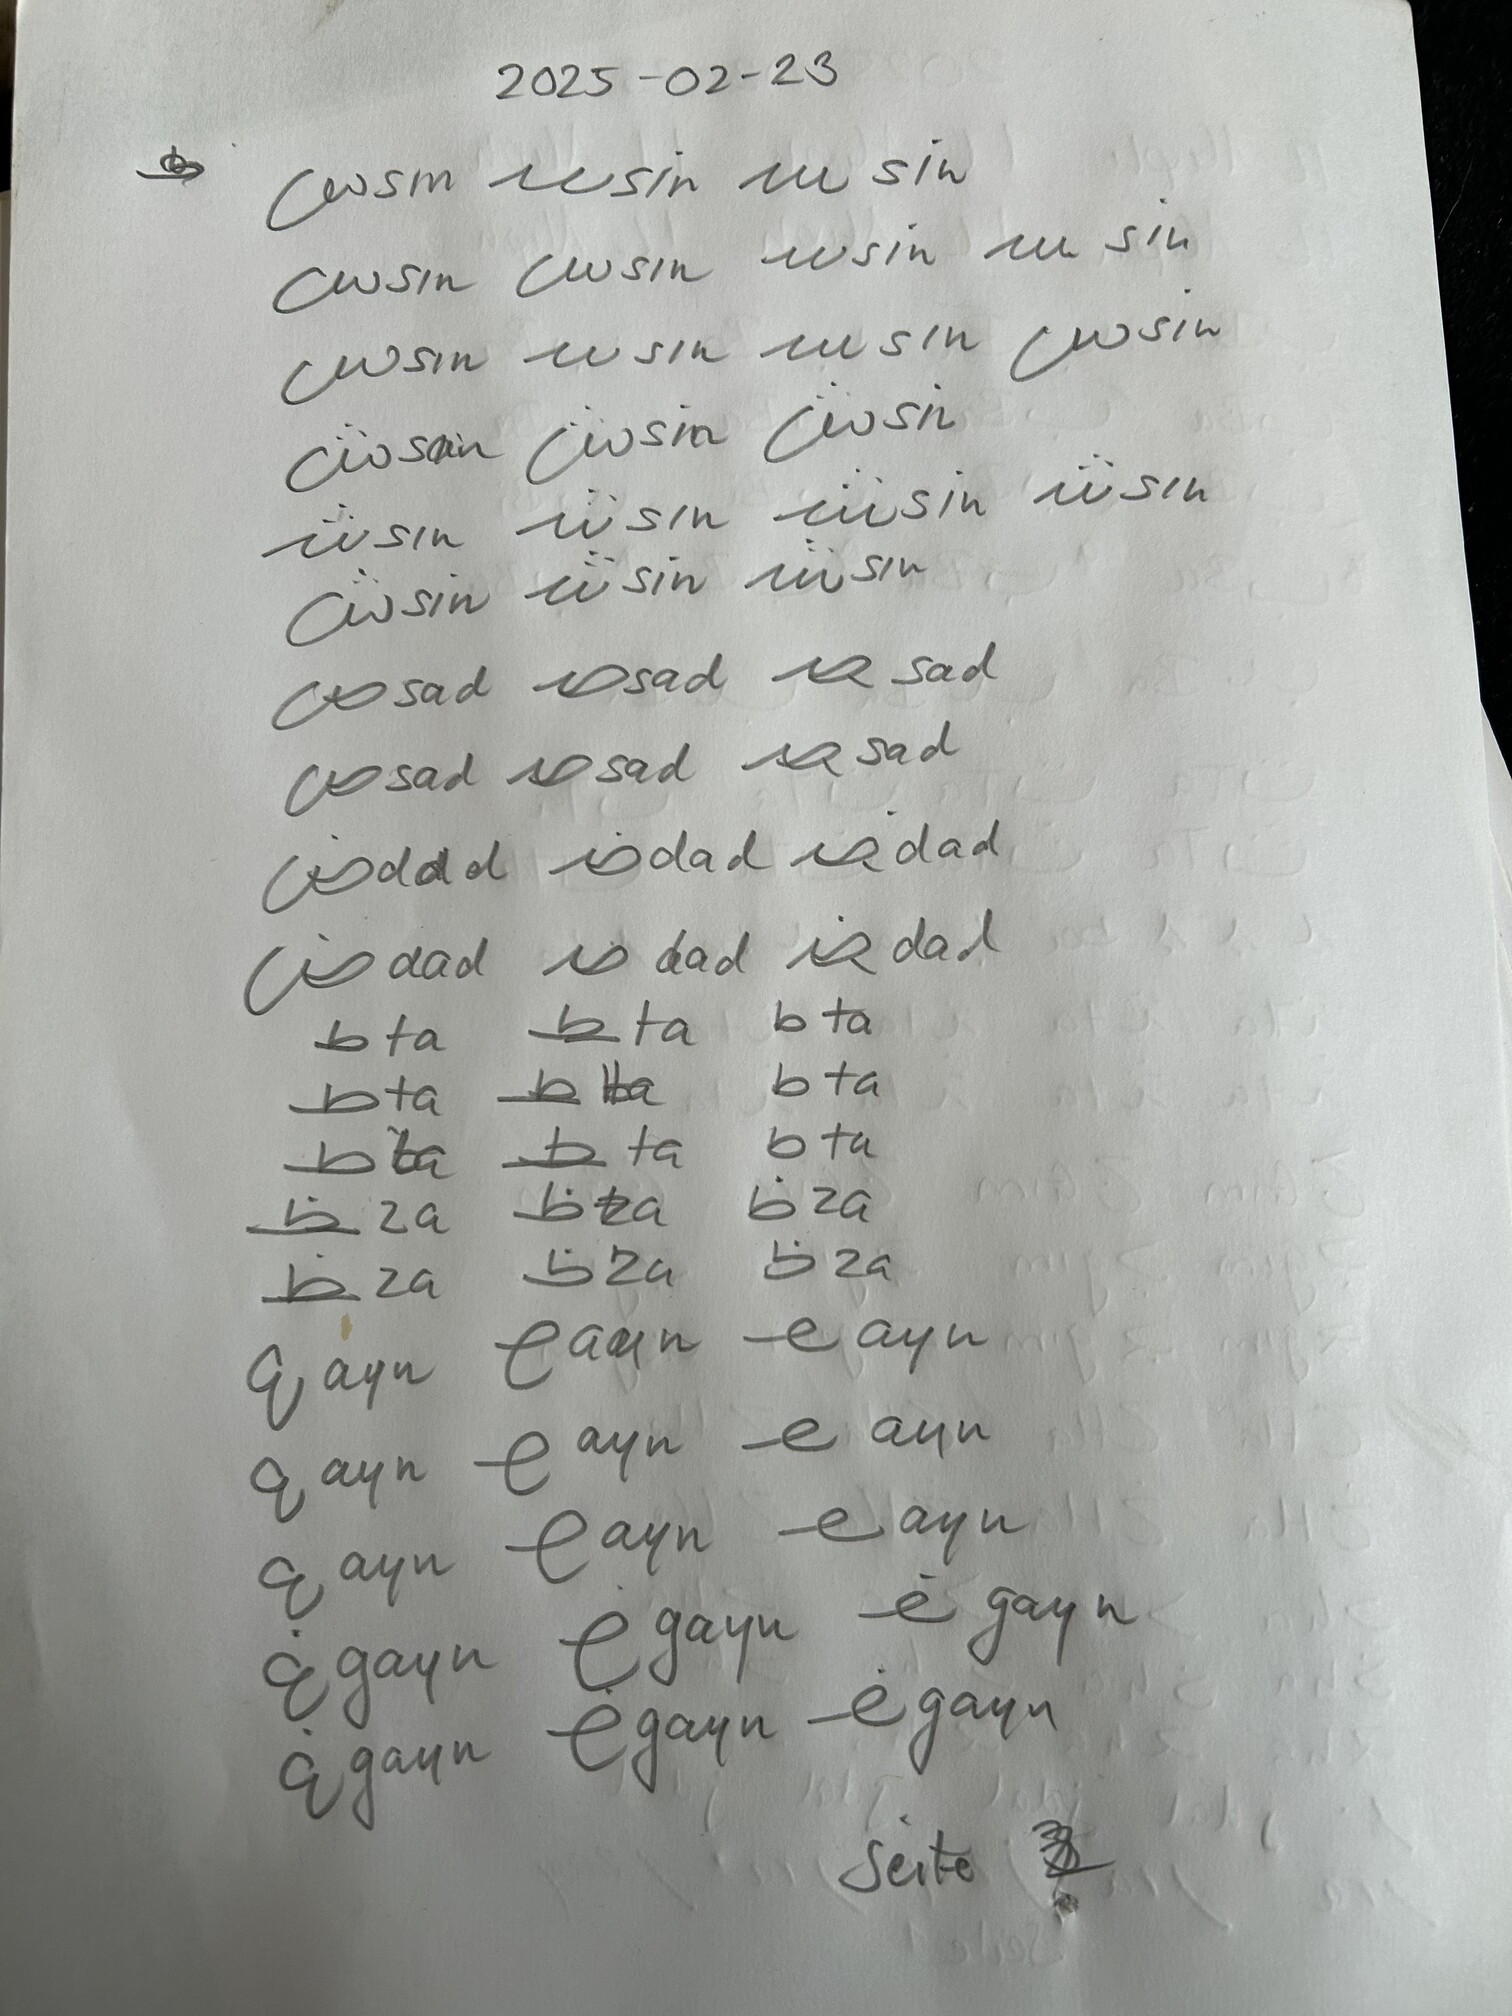 2025-02-23
س sin سـ sin ـسـ sin
س sin س sin سـ sin ـسـ sin
س sin سـ sin ـسـ sin س sin
ش sin ش sin ش sin
شـ sin شـ sin ـشـ sin شـ sin
ش sin شـ sin ـشـ sin
ص sad صـ sad ـصـ sad
ص sad صـ sad ـصـ sad
ض dad ضـ dad ـضـ dad
ض dad صـ dad ـضـ dad
ط ta ـطـ ta ط ta
ـط ta ـطـ ta ط ta
ـط ta ـطـ ta ط ta
ـظـ za ـظ za ظ za
ـظـ za ـظ za ظ za
ع ayn ـع ayn ـعـ ayn
ع ayn ـع ayn ـعـ ayn
ع ayn ـع ayn ـعـ ayn
غ gayn ـغ gayn ـغـ gayn
غ gayn ـغ gayn ـغـ gayn
Seite